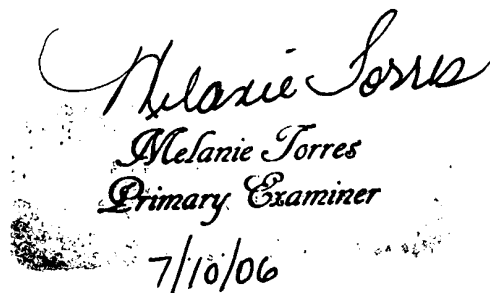 Melanie Torres
Melanie Torres
Primary Examiner
7/10/06